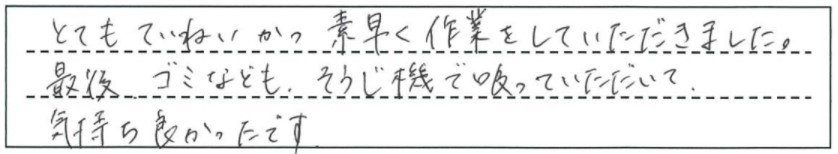 とてもていねいかつ素早く作業をしていただきました。
最後、ゴミなども、そうじ機で吸っていただいて、
気持ち良かったです。